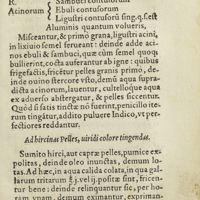 R. Sambuci contusorum
Acinorum Ebuli contusorum
Ligustri contusorū sing. q. s. est
Aluminis quantum volueris,
Misceantur, & primo grana, ligustri acini,
in lixiuio semel ferueant: deinde adde aci-
nos ebuli & sambuci, quæ cùm semel quoq;
bullierint, cocta auferantur ab igne: vbi q;
frigefactis, fricetur pelles granis primò, de-
inde ouino stercore vsto, demū aqua supra-
dicta acinorum, lauentur, cultelloque aqua
ex aduerso abstergatur, & pelles siccentur.
Quòd si satis tinctæ nō fuerint, penicillo ite-
rum tingātur, addito puluere Indico, vt per-
fectiores reddantur.
Ad hircinas Pelles, uiridi colore tingendas.
Sumito hirci, aut capræ pelles, pumice ex-
politas, deinde oleo inunctas, demum lo-
tas. Ad hæc, in aqua calida colata, in qua gal-
larum tritarum ʒ j. vel ij. positæ sint, fricen-
tur bene: deinde delinquantur sic, per ho-
ram vnam. demum eximantur, expriman-